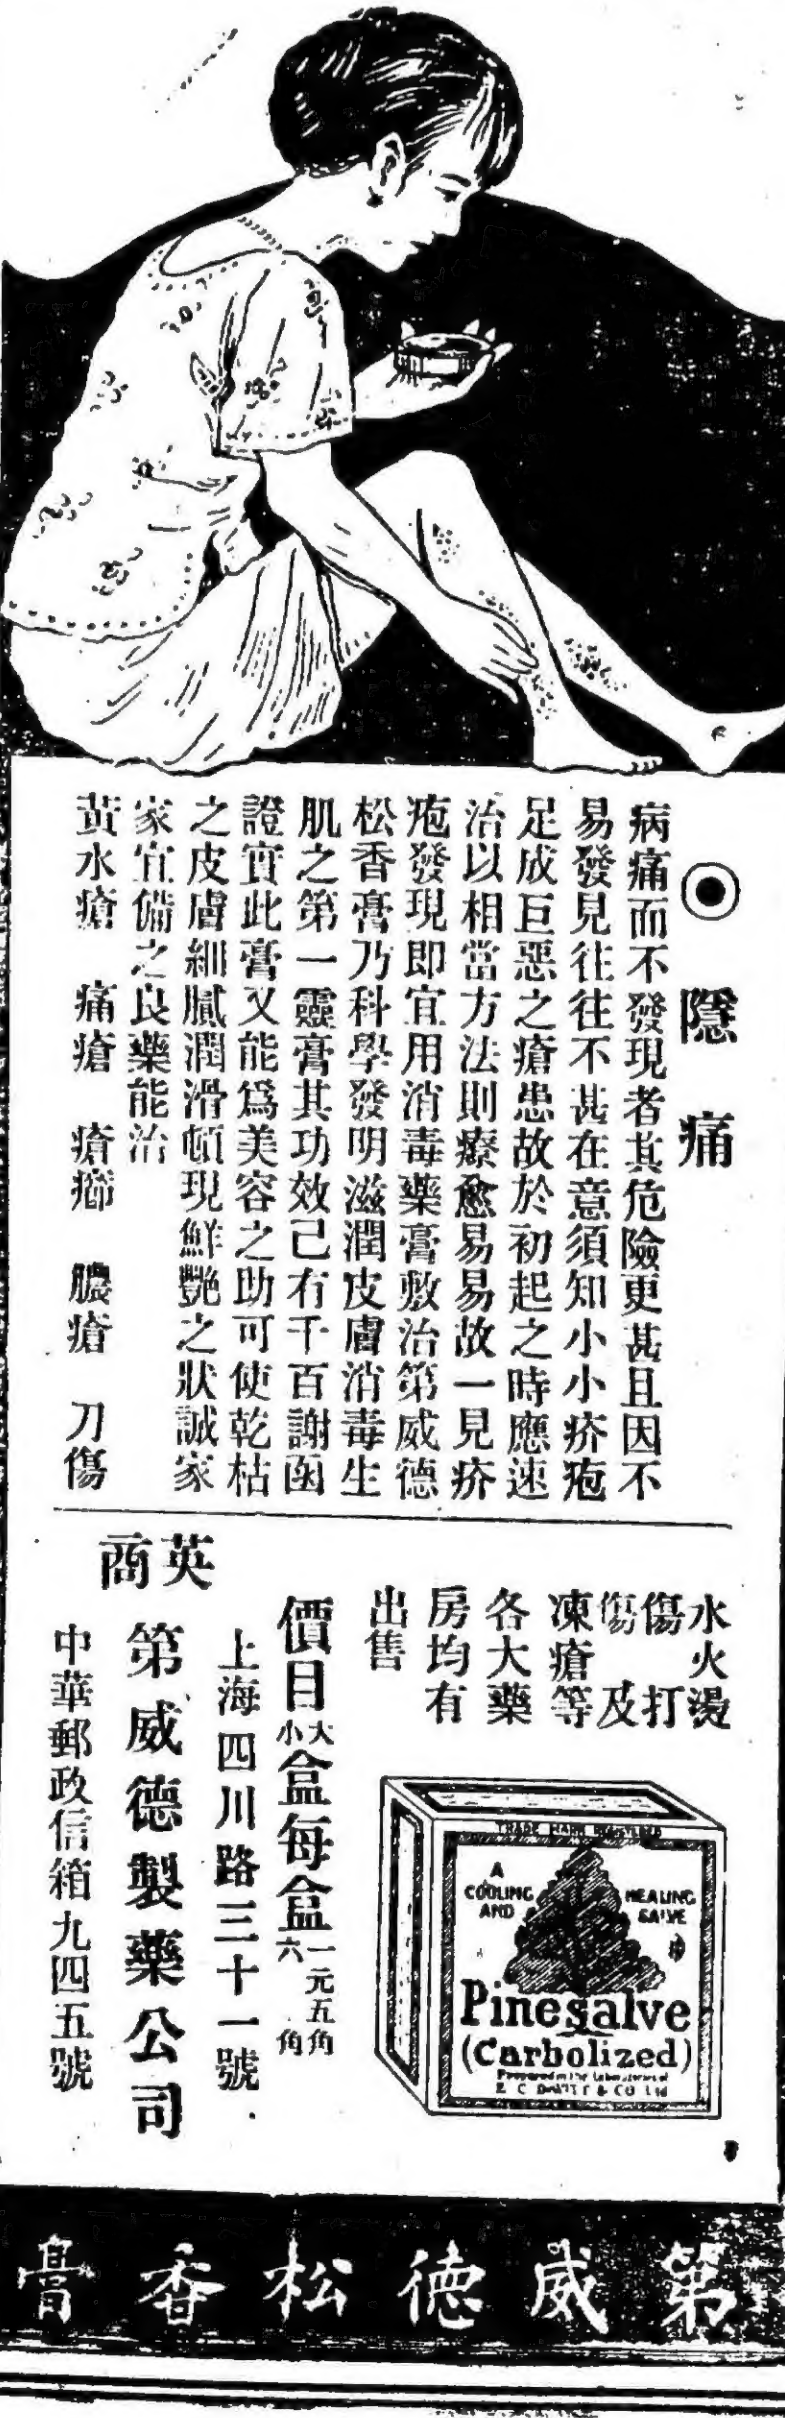 隱痛
病痛而不發現者其危險更甚且因不
易發見往往不甚在意須知小小疥疱
足成巨惡之瘡患故於初起之時應速
治以相當方法則療愈易易故一見疥
疱發現即宜用消毒藥膏敷治第威德
松香膏乃科學發明滋潤皮膚消毒生
肌之第一靈膏其功效已有千百謝函
證實此膏又能爲美容之助可使乾枯
之皮膚細膩潤滑頓現鮮艷之狀誠家
家宜備之良藥能治
黃水瘡 痛瘡 瘡癤 膿瘡 刀傷
水火燙
傷 打
傷 及
凍瘡等
各大藥
房均有
出售
價目大小盒每盒一元五角六角
上海四川路三十一號
英商
第威德製藥公司
中華郵政信箱九四五號
TRADE MARK REGISTERED
A COOLING AND
HEALING SALVE
Pinesalve
(Carbolized)
Prepared in the Laboratories of
E. C. DeWITT & CO. Ltd
第威德松香膏